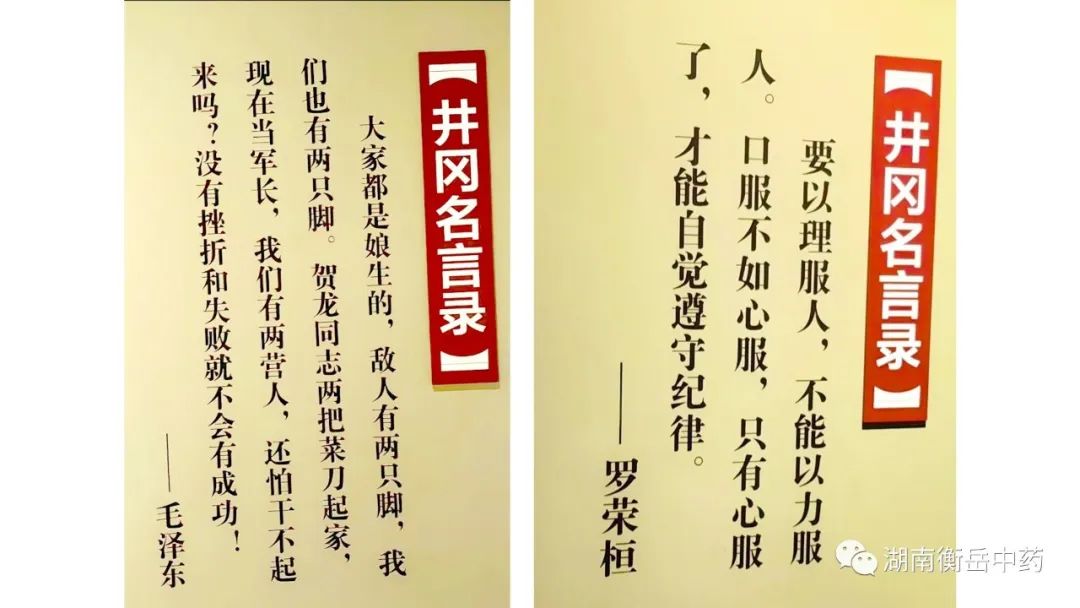 【井冈名言录】
大家都是娘生的，敌人有两只脚，我
们也有两只脚。贺龙同志两把菜刀起家，
现在当军长，我们有两营人，还怕干不起
来吗？没有挫折和失败就不会有成功！
——毛泽东
【井冈名言录】
要以理服人，不能以力服
人。口服不如心服，只有心服
了，才能自觉遵守纪律。
——罗荣桓
湖南衡岳中药